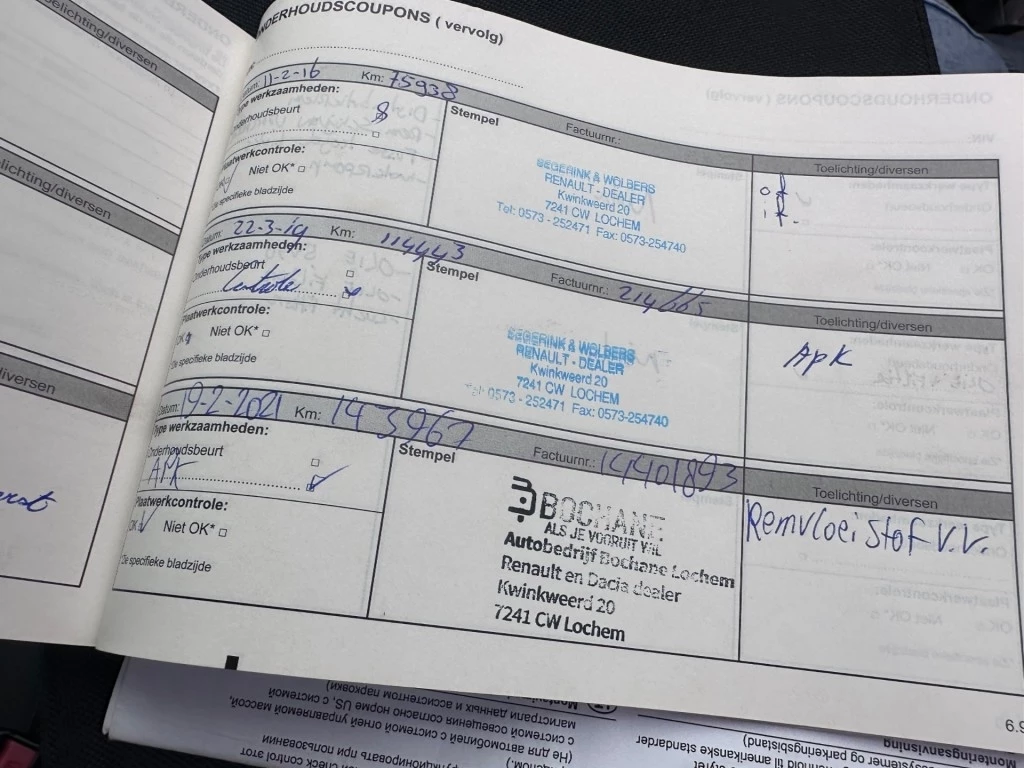 Toelichting/diversen
Toelichting/diversen
diversen
ONDERHOUDSCOUPONS ( vervolg)
Datum: 11-2-16 Km: 75938
Type werkzaamheden:
Onderhoudsbeurt
Plaatwerkcontrole:
OK Niet OK*
*De specifieke bladzijde
Stempel
Factuurnr.:
SEGERINK & WOLBERS
RENAULT - DEALER
Kwinkweerd 20
7241 CW LOCHEM
Tel: 0573 - 252471 Fax: 0573-254740
Toelichting/diversen
Datum: 22-3-19 Km: 114443
Type werkzaamheden:
Onderhoudsbeurt
Controle
Plaatwerkcontrole:
OK Niet OK*
*De specifieke bladzijde
Stempel
Factuurnr.: 214665
SEGERINK & WOLBERS
RENAULT - DEALER
Kwinkweerd 20
7241 CW LOCHEM
Tel: 0573 - 252471 Fax: 0573-254740
Toelichting/diversen
Apk
Datum: 19-2-2021 Km: 143967
Type werkzaamheden:
Onderhoudsbeurt
APK
Plaatwerkcontrole:
OK Niet OK*
*De specifieke bladzijde
Stempel
Factuurnr.: 14401893
BOCHANE
ALS JE VOORUIT WIL
Autobedrijf Bochane Lochem
Renault en Dacia dealer
Kwinkweerd 20
7241 CW Lochem
Toelichting/diversen
Remvloeistof V.V.
магистрали данных и ассистентом парковки)
с системой освещения согласно норме US, с системой
(Не для автомобилей с системой огней управляемой массой,
Monteringsanvisning